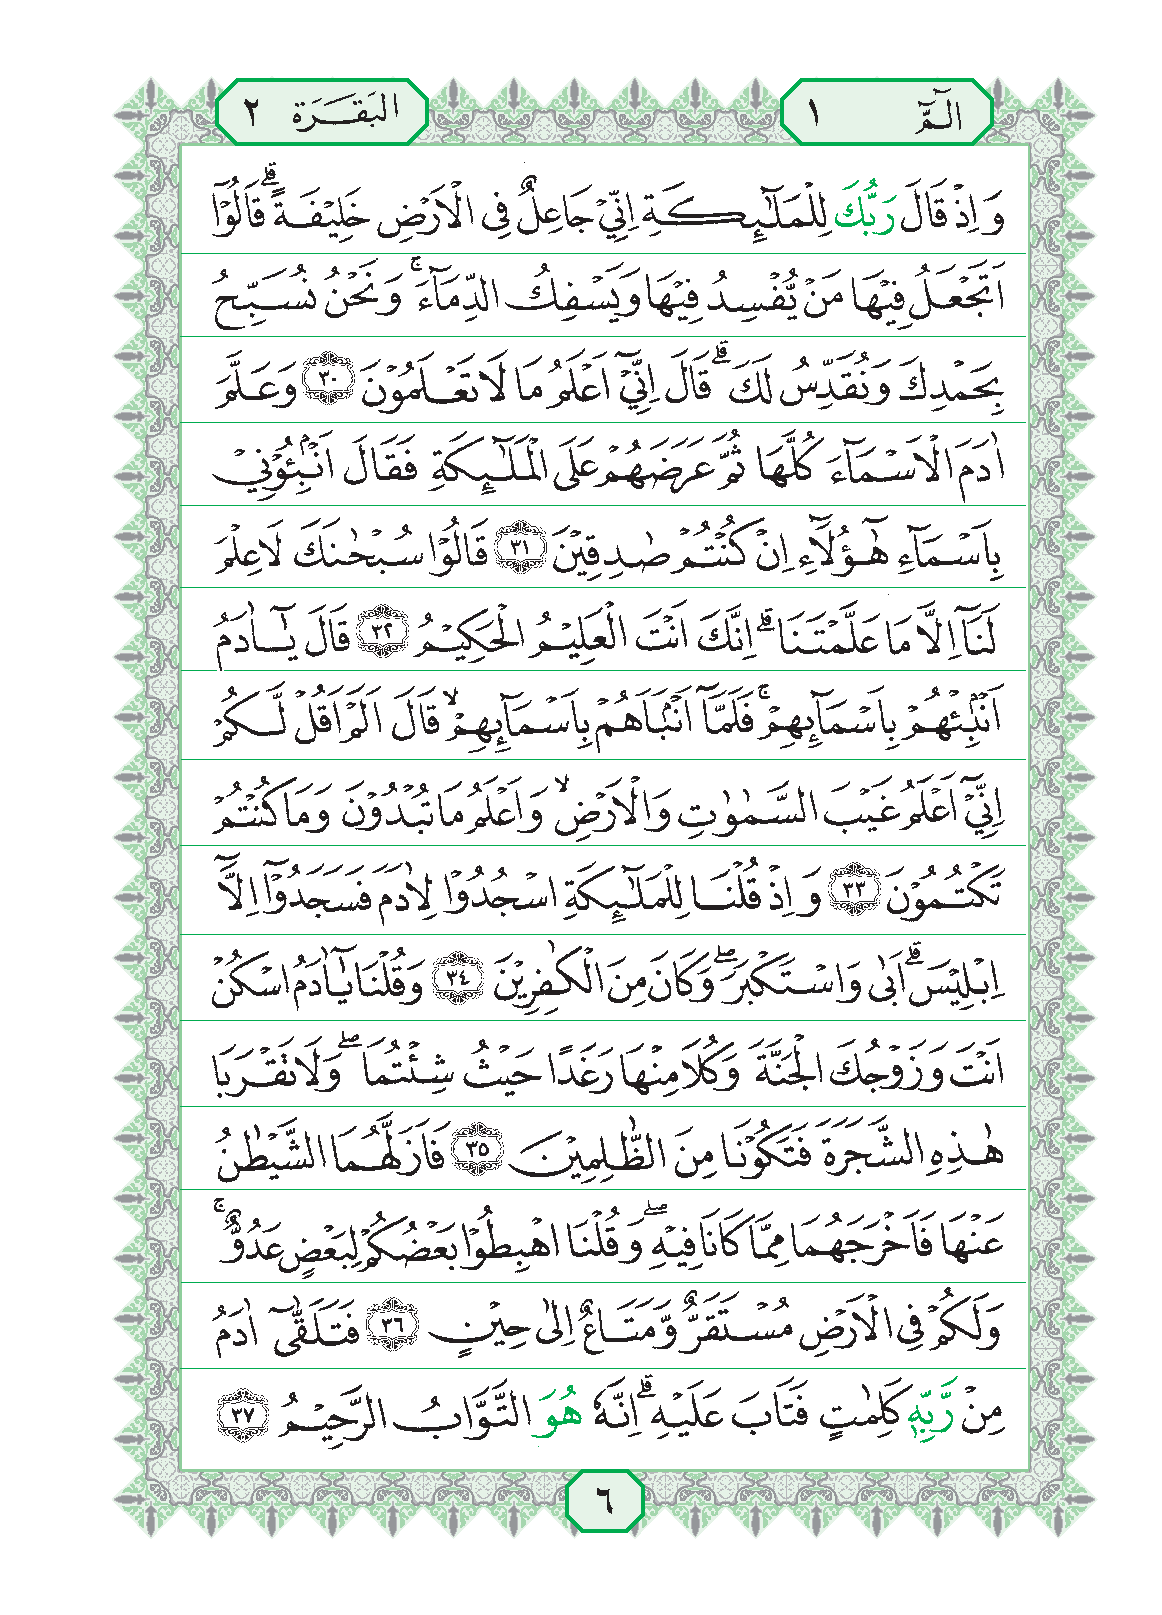 الٓمّٓ ١
البقرة ٢
وَ اِذْ قَالَ رَبُّكَ لِلْمَلٰٓئِكَةِ اِنِّیْ جَاعِلٌ فِی الْاَرْضِ خَلِیْفَةً ؕ قَالُوْۤا
اَتَجْعَلُ فِیْهَا مَنْ یُّفْسِدُ فِیْهَا وَیَسْفِكُ الدِّمَآءَ ۚ وَنَحْنُ نُسَبِّحُ
بِحَمْدِكَ وَنُقَدِّسُ لَكَ ؕ قَالَ اِنِّیْۤ اَعْلَمُ مَا لَا تَعْلَمُوْنَ ﴿۳۰﴾ وَعَلَّمَ
اٰدَمَ الْاَسْمَآءَ كُلَّهَا ثُمَّ عَرَضَهُمْ عَلَی الْمَلٰٓئِكَةِ فَقَالَ اَنْۢبِـُٔوْنِیْ
بِاَسْمَآءِ هٰۤؤُلَآءِ اِنْ كُنْتُمْ صٰدِقِیْنَ ﴿۳۱﴾ قَالُوْا سُبْحٰنَكَ لَا عِلْمَ
لَنَاۤ اِلَّا مَا عَلَّمْتَنَا ؕ اِنَّكَ اَنْتَ الْعَلِیْمُ الْحَكِیْمُ ﴿۳۲﴾ قَالَ یٰۤاٰدَمُ
اَنْۢبِئْهُمْ بِاَسْمَآىِٕهِمْ ۚ فَلَمَّاۤ اَنْۢبَاَهُمْ بِاَسْمَآىِٕهِمْ ۙ قَالَ اَلَمْ اَقُلْ لَّكُمْ
اِنِّیْۤ اَعْلَمُ غَیْبَ السَّمٰوٰتِ وَالْاَرْضِ ۙ وَاَعْلَمُ مَا تُبْدُوْنَ وَمَا كُنْتُمْ
تَكْتُمُوْنَ ﴿۳۳﴾ وَ اِذْ قُلْنَا لِلْمَلٰٓئِكَةِ اسْجُدُوْا لِاٰدَمَ فَسَجَدُوْۤا اِلَّاۤ
اِبْلِیْسَ ؕ اَبٰی وَاسْتَكْبَرَ ۗ وَكَانَ مِنَ الْكٰفِرِیْنَ ﴿۳۴﴾ وَقُلْنَا یٰۤاٰدَمُ اسْكُنْ
اَنْتَ وَزَوْجُكَ الْجَنَّةَ وَكُلَا مِنْهَا رَغَدًا حَیْثُ شِئْتُمَا ۖ وَلَا تَقْرَبَا
هٰذِهِ الشَّجَرَةَ فَتَكُوْنَا مِنَ الظّٰلِمِیْنَ ﴿۳۵﴾ فَاَزَلَّهُمَا الشَّیْطٰنُ
عَنْهَا فَاَخْرَجَهُمَا مِمَّا كَانَا فِیْهِ ۖ وَ قُلْنَا اهْبِطُوْا بَعْضُكُمْ لِبَعْضٍ عَدُوٌّ ۚ
وَلَكُمْ فِی الْاَرْضِ مُسْتَقَرٌّ وَّ مَتَاعٌ اِلٰی حِیْنٍ ﴿۳۶﴾ فَتَلَقّٰۤی اٰدَمُ
مِنْ رَّبِّهٖ كَلِمٰتٍ فَتَابَ عَلَیْهِ ؕ اِنَّهٗ هُوَ التَّوَّابُ الرَّحِیْمُ ﴿۳۷﴾
٦